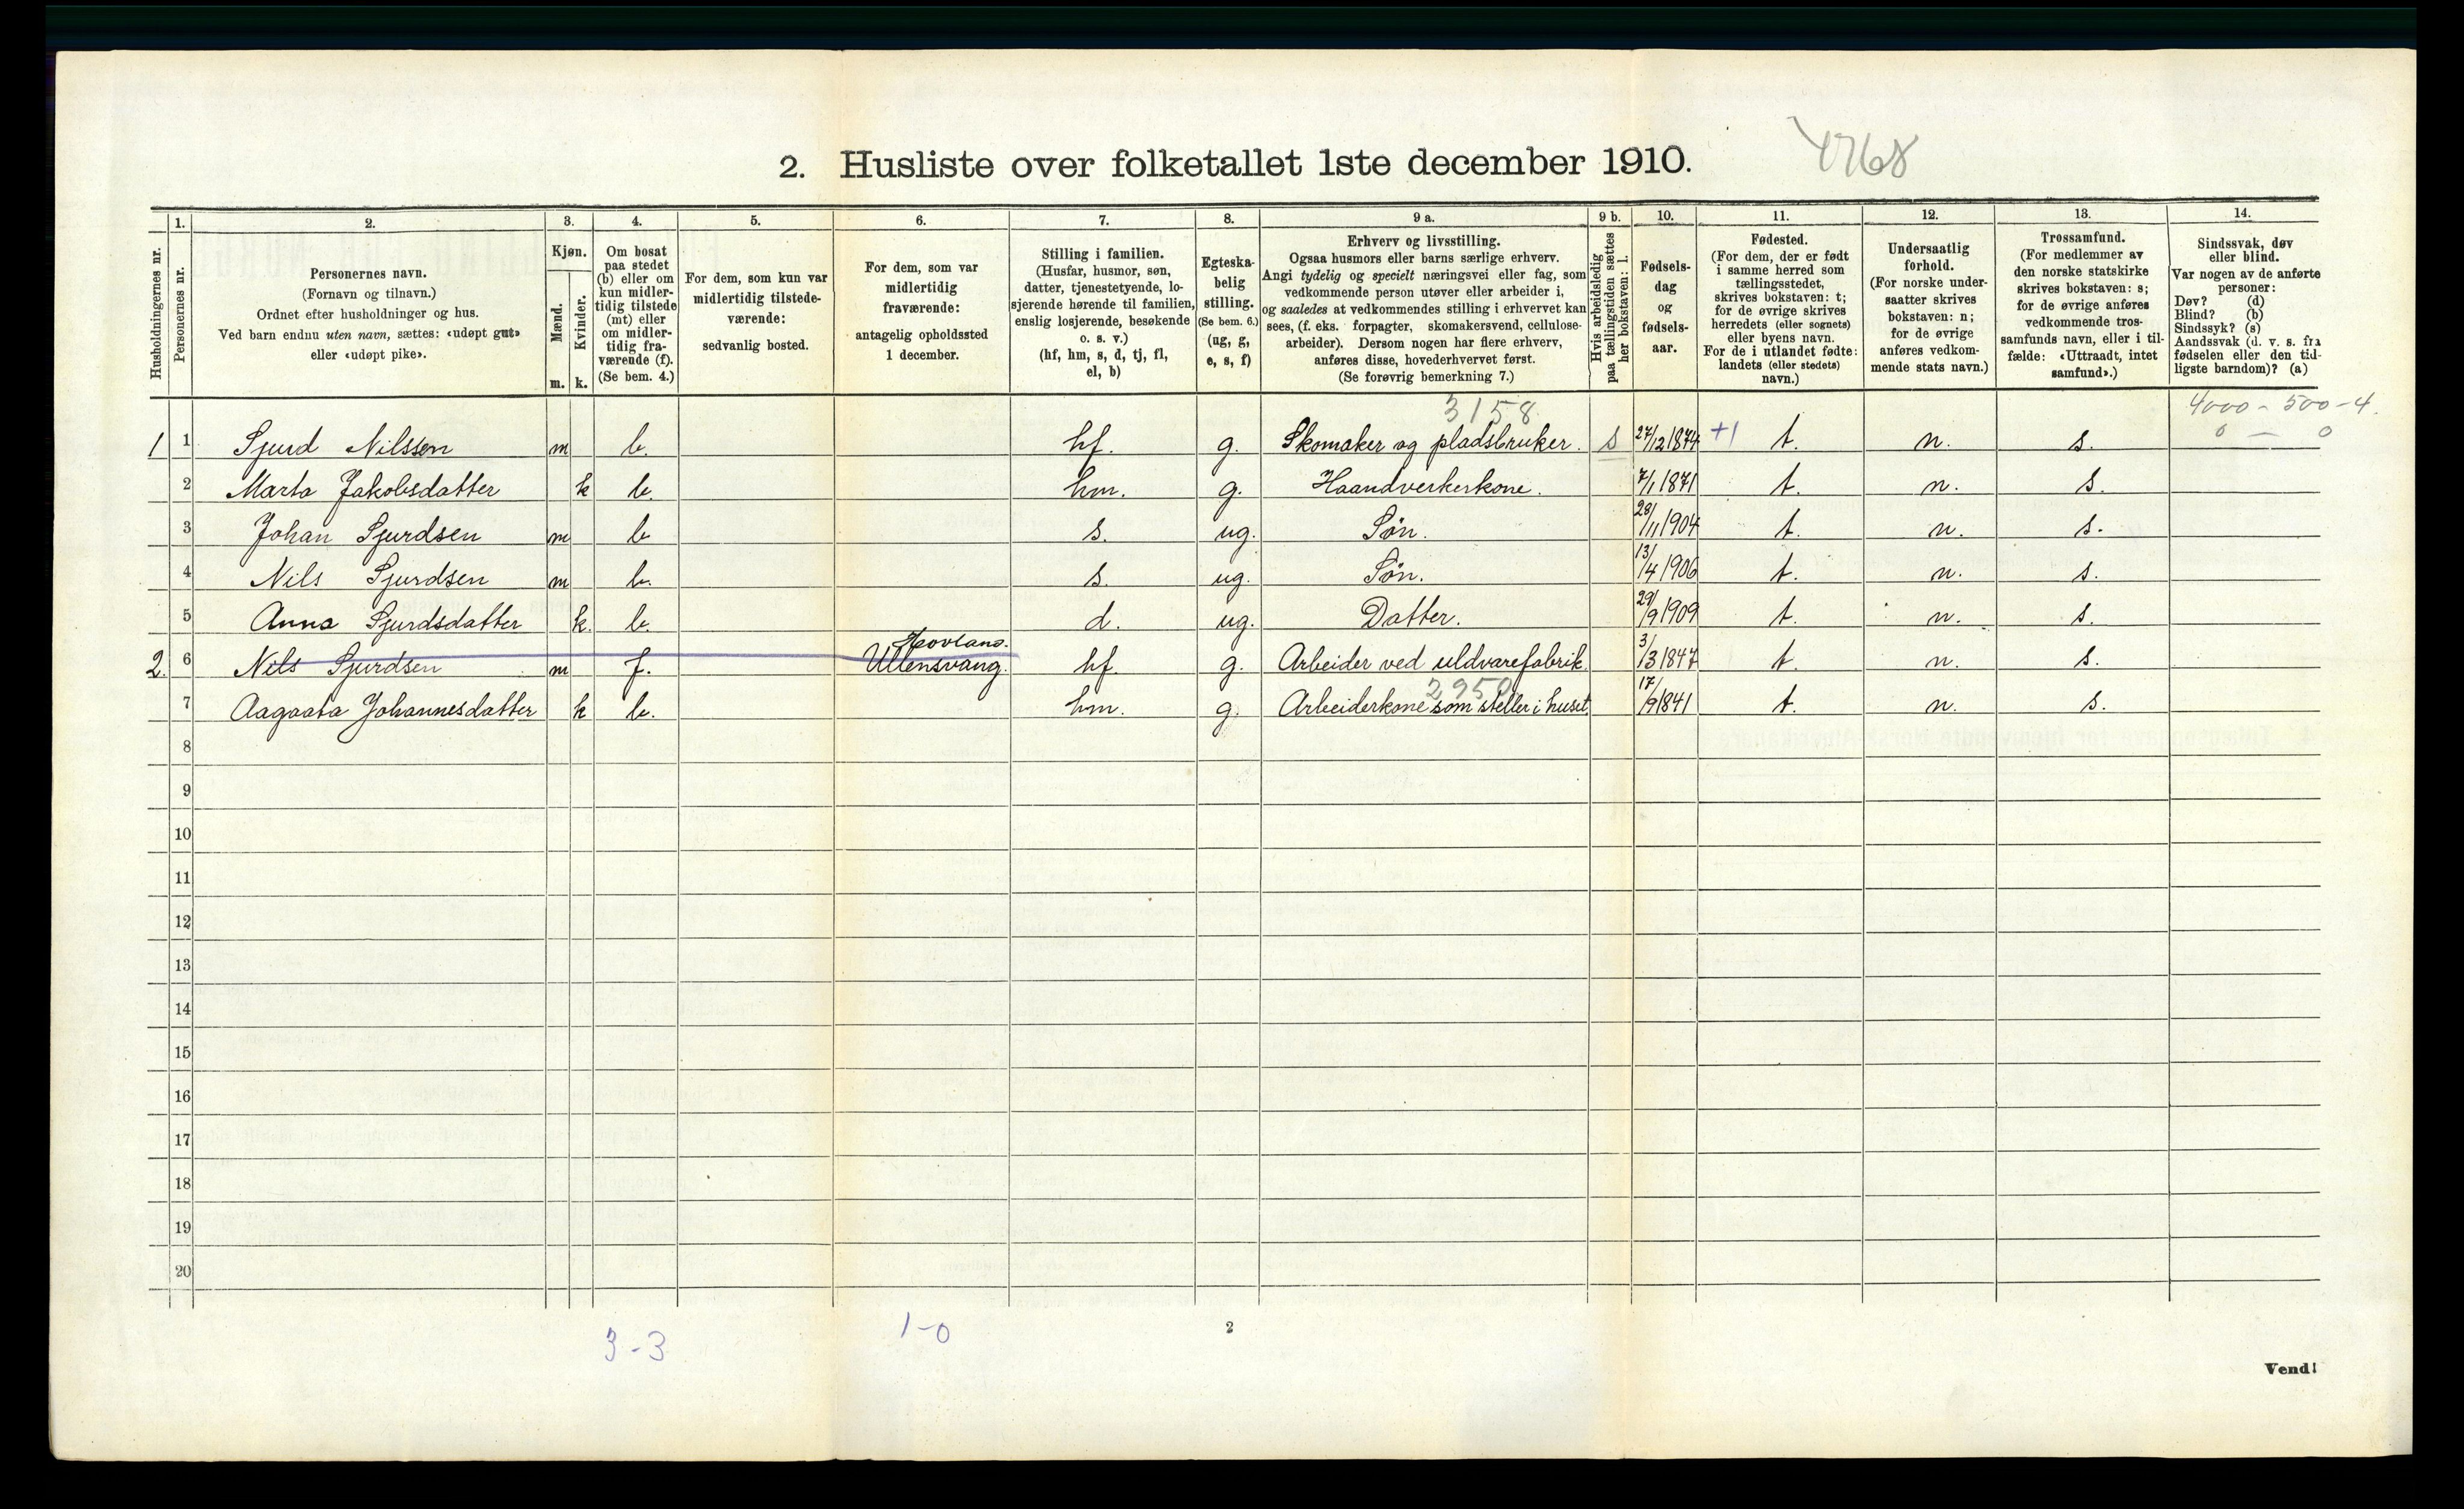 2. Husliste over folketallet 1ste december 1910.
Husholdningernes nr.
1.
Personernes nr.
2.
Personernes navn.
(Fornavn og tilnavn.)
Ordnet efter husholdninger og hus.
Ved barn endnu uten navn, sættes: «udøpt gut»
eller «udøpt pike».
3.
Kjøn.
Mænd.
Kvinder.
m. k.
4.
Om bosat
paa stedet
(b) eller om
kun midler-
tidig tilstede
(mt) eller
om midler-
tidig fra-
værende (f).
(Se bem. 4.)
5.
For dem, som kun var
midlertidig tilstede-
værende:
sedvanlig bosted.
6.
For dem, som var
midlertidig
fraværende:
antagelig opholdssted
1 december.
7.
Stilling i familien.
(Husfar, husmor, søn,
datter, tjenestetyende, lo-
sjerende hørende til familien,
enslig losjerende, besøkende
o. s. v.)
(hf, hm, s, d, tj, fl,
el, b)
8.
Egteska-
belig
stilling.
(Se bem. 6.)
(ug, g,
e, s, f)
9 a.
Erhverv og livsstilling.
Ogsaa husmors eller barns særlige erhverv.
Angi tydelig og specielt næringsvei eller fag, som
vedkommende person utøver eller arbeider i,
og saaledes at vedkommendes stilling i erhvervet kan
sees, (f. eks. forpagter, skomakersvend, cellulose-
arbeider). Dersom nogen har flere erhverv,
anføres disse, hovederhvervet først.
(Se forøvrig bemerkning 7.)
9 b.
Hvis arbeidsledig
paa tællingstiden sættes
her bokstaven: l.
10.
Fødsels-
dag
og
fødsels-
aar.
11.
Fødested.
(For dem, der er født
i samme herred som
tællingsstedet,
skrives bokstaven: t;
for de øvrige skrives
herredets (eller sognets)
eller byens navn.
For de i utlandet fødte:
landets (eller stedets)
navn.)
12.
Undersaatlig
forhold.
(For norske under-
saatter skrives
bokstaven: n;
for de øvrige
anføres vedkom-
mende stats navn.)
13.
Trossamfund.
(For medlemmer av
den norske statskirke
skrives bokstaven: s;
for de øvrige anføres
vedkommende tros-
samfunds navn, eller i til-
fælde: «Uttraadt, intet
samfund».)
14.
Sindssvak, døv
eller blind.
Var nogen av de anførte
personer:
Døv? (d)
Blind? (b)
Sindssyk? (s)
Aandssvak (d. v. s. fra
fødselen eller den tid-
ligste barndom)? (a)
3158
4000 - 500 - 4.
0 — 0
1 1 Sjurd Nilssen m b. hf. g. Skomaker og pladsbruker. s 27/12 1874 +1 t. n. s.
2 Marta Jakobsdatter k b. hm. g. Haandverkerkone. 7/1 1871 t. n. s.
3 Johan Sjurdsen m b s. ug. Søn. 28/11 1904 t. n. s.
4 Nils Sjurdsen m b. s. ug. Søn. 13/4 1906 t. n. s.
5 Anna Sjurdsdatter k. b. d. ug. Datter. 29/9 1909 t. n. s.
2. 6 Nils Sjurdsen m f. Hovland. Ullensvang. hf. g. Arbeider ved uldvarefabrik. 3/3 1847 t. n. s.
2950
7 Aagaata Johannesdatter k b. hm. g. Arbeiderkone som steller i huset 17/9 1841 t. n. s.
8
9
10
11
12
13
14
15
16
17
18
19
20
3-3
1-0
2
Vend!